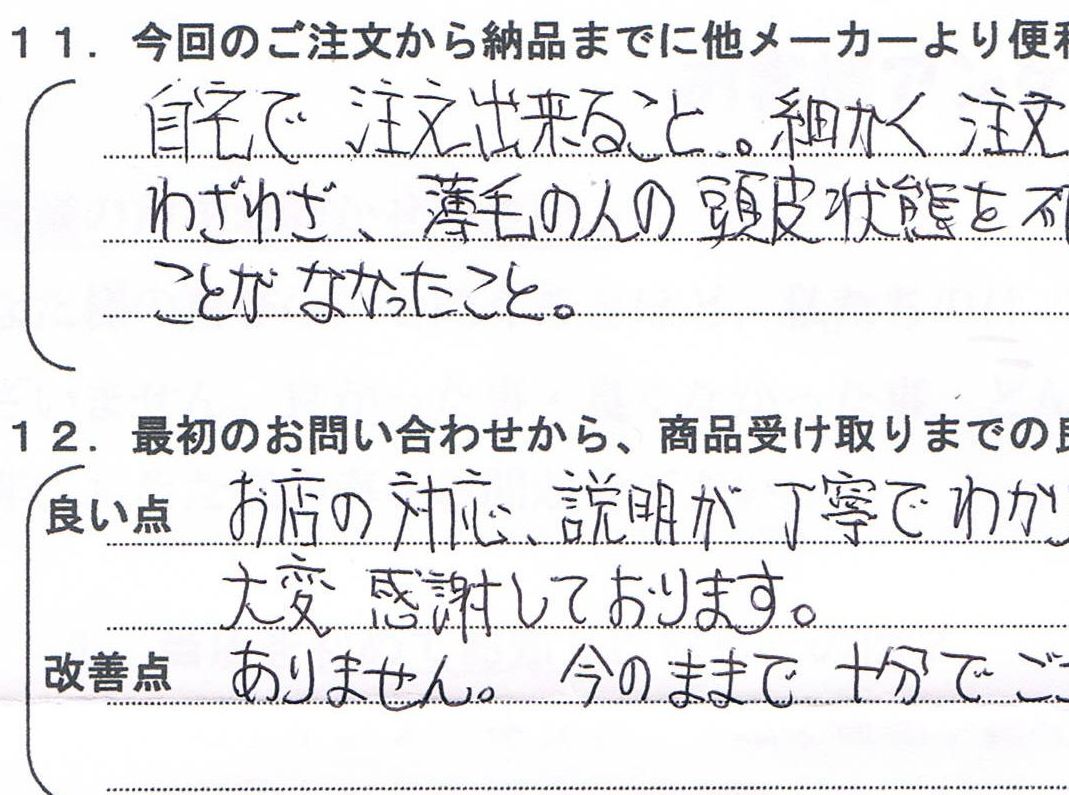 11．今回のご注文から納品までに他メーカーより便利
自宅で 注文出来ること。細かく 注文
わざわざ、薄毛の人の 頭皮状態を 不
ことが なかったこと。
12．最初のお問い合わせから、商品受け取りまでの良
良い点 お店の対応、説明が 丁寧で わかり
大変 感謝しております。
改善点 ありません。 今のままで 十分で ござ